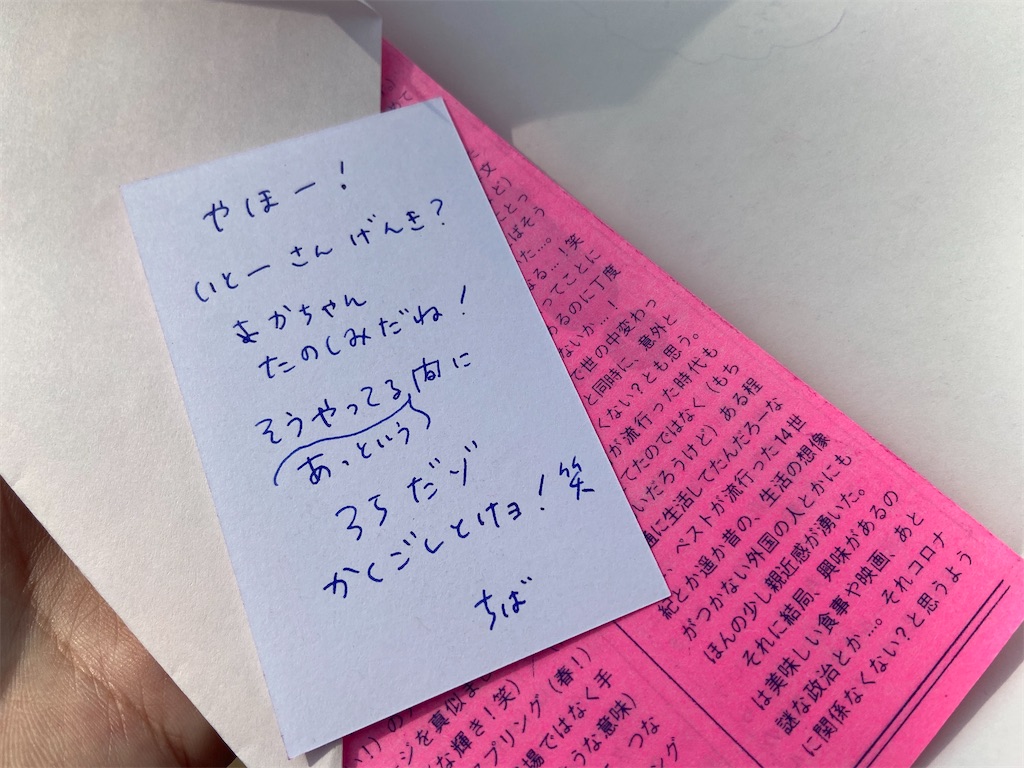 やほー!
いとーさん げんき?
あかちゃん
たのしみだね!
そうやってる間に
あっという
35だゾ
かくごしとけヨ!笑
ちば
文
ど)
ことっ
ばそう
みた…。
る…!笑
ってことに
あるのに丁度
ないか…!
で世の中変わっ
と同時に、意外と
くない?とも思う。
が流行った時代も
てたのではなく(もち
いだろうけど)ある程
風に生活してたんだろーな
、ペストが流行った14世
紀とか遥か昔の、生活の想像
がつかない外国の人とかにも
ほんの少し親近感が湧いた。
それに結局、興味があるの
は美味しい食事や映画、あと
謎な政治とか…。それコロナ
に関係なくない?と思うよう
ージを真似まし
な輝き!笑)
プリング(春!)
場ではなく手
うな意味)
つな
ング